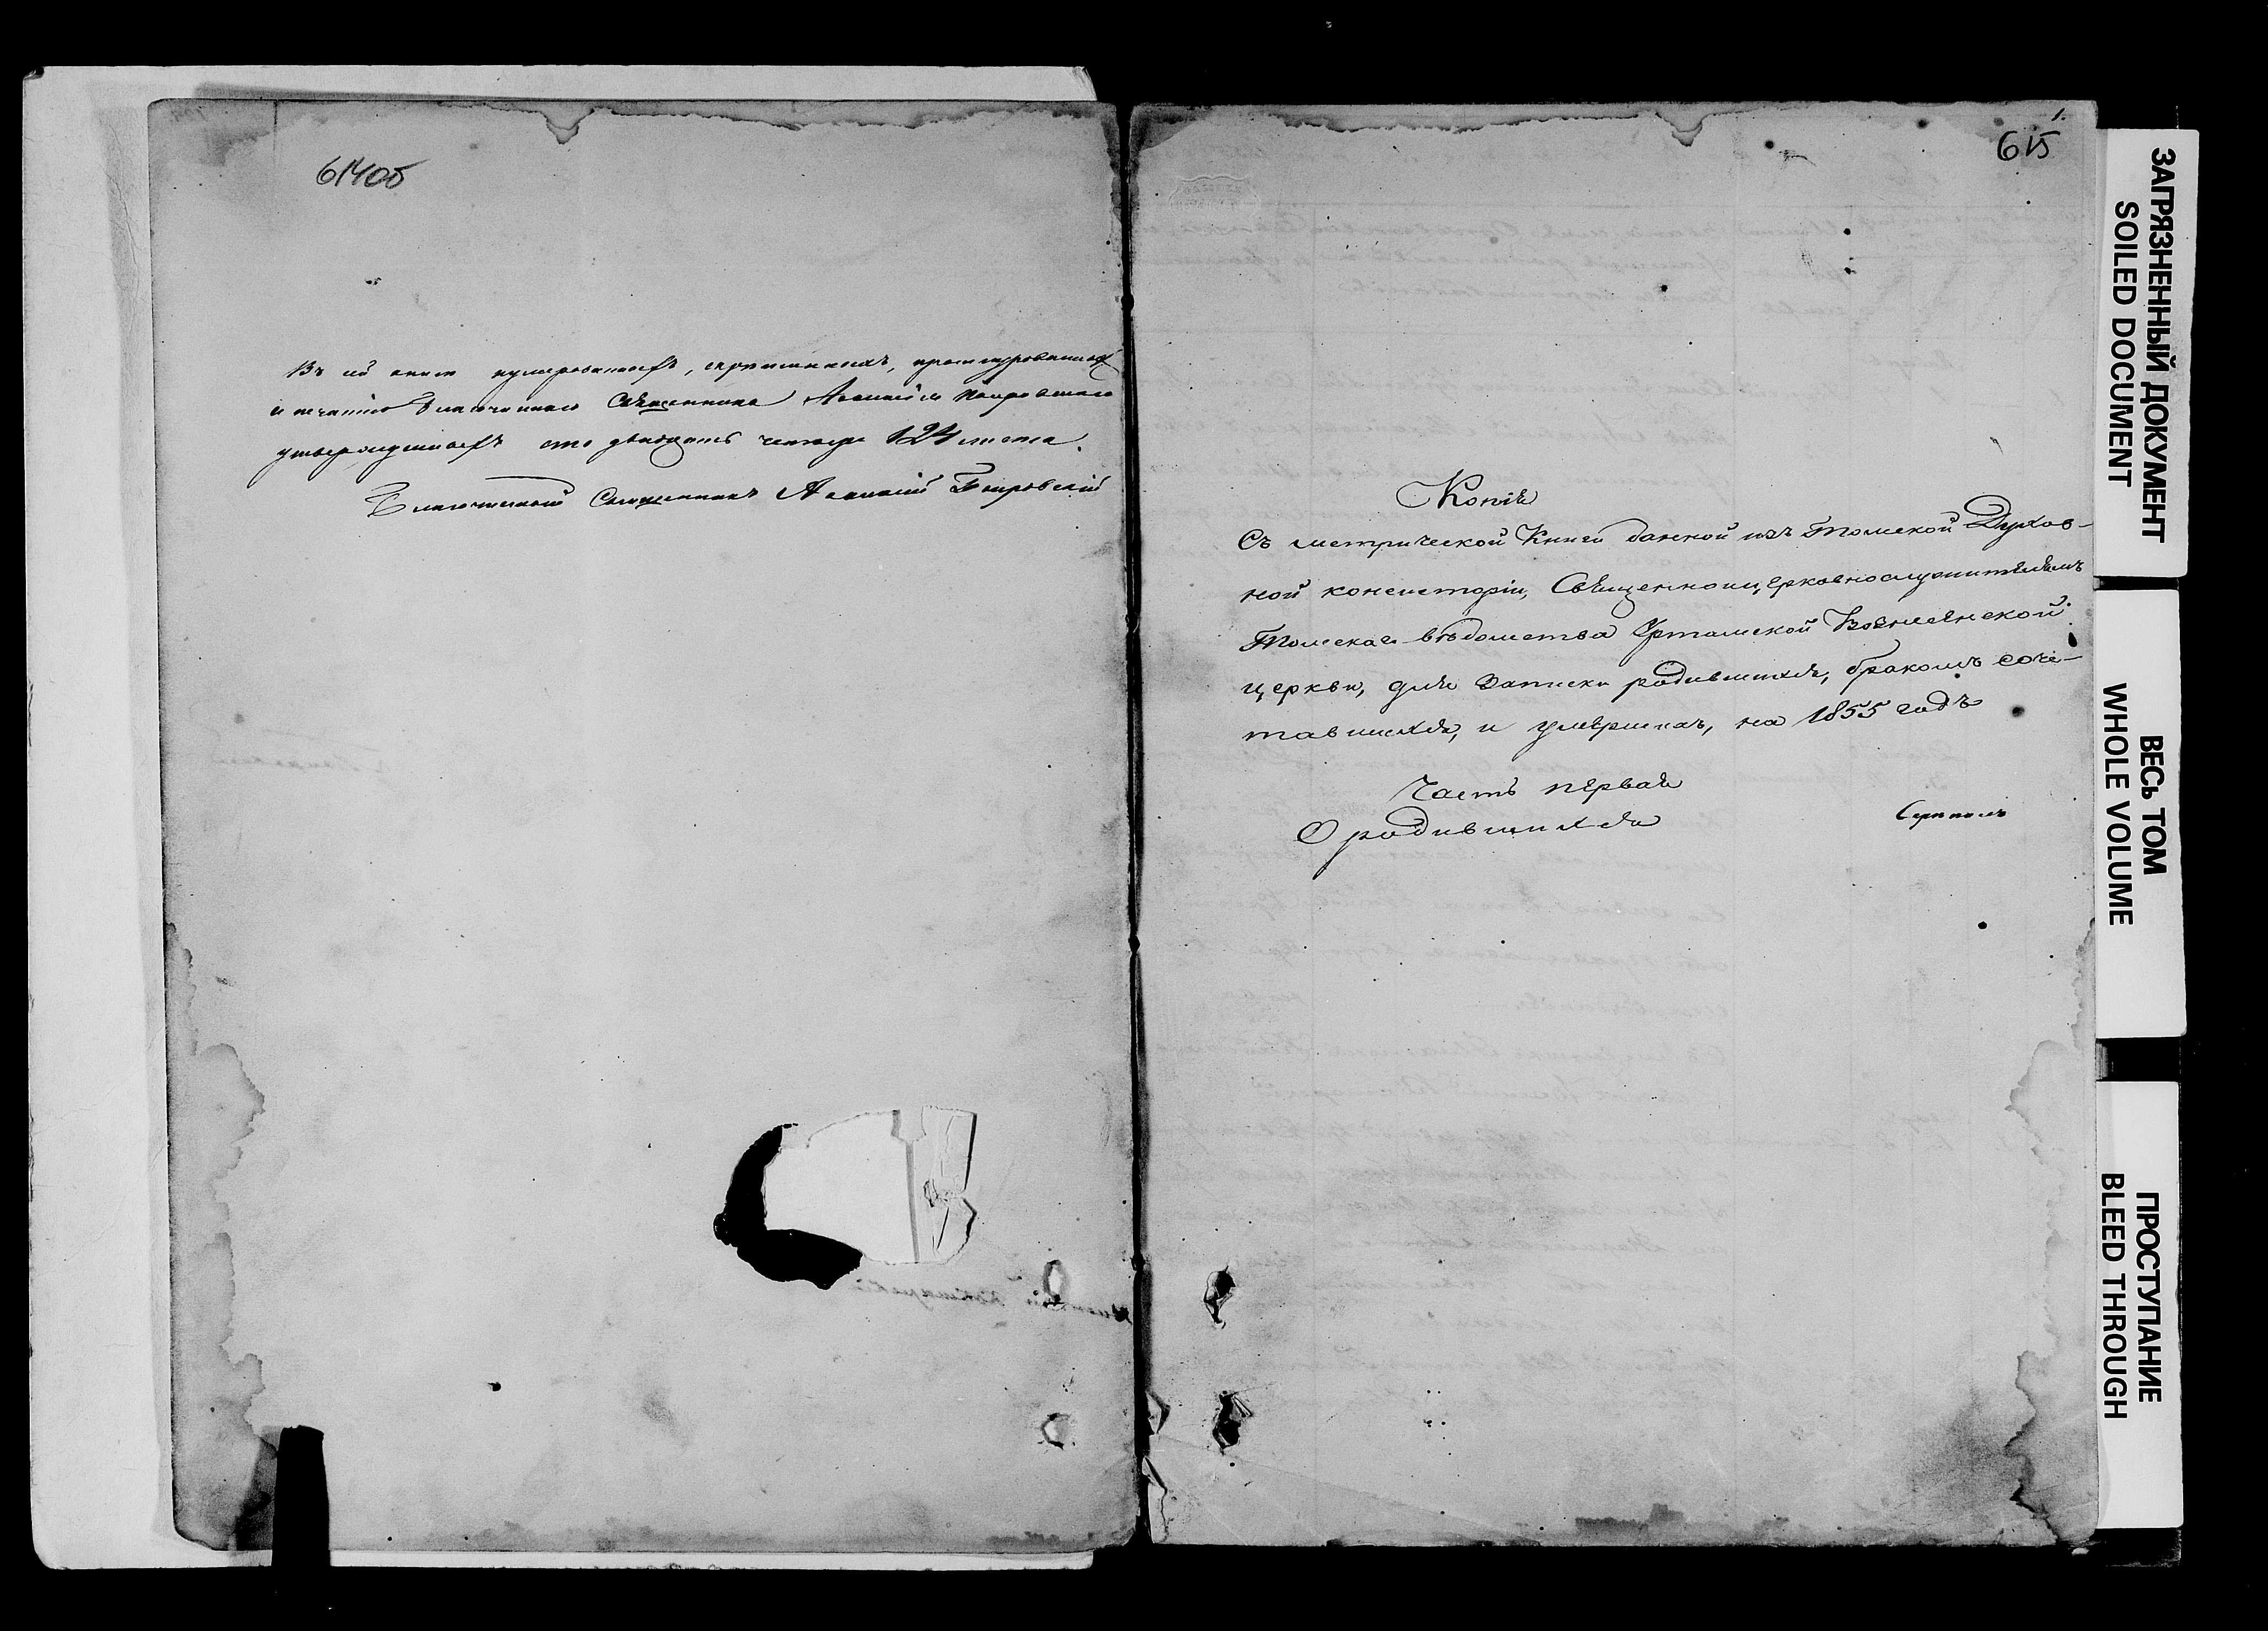 614об
Въ сей книгѣ нумерованныхъ, скрѣпленныхъ, прошнурованныхъ
и печатью Благочиннаго Священника
утвержденныхъ сто двадцать четыре 124 листа.
Благочинный Священникъ
1.
615
Копія
Съ метрической Книги данной изъ Томской Духов-
ной консисторіи, Священноцерковнослужителямъ
Томскаго вѣдомства Уртамской Вознесенской
церкви, для Записки родившихся, бракомъ соче-
тавшихся, и умершихъ, на 1855 годъ
Часть первая
О родившихся
ЗАГРЯЗНЕННЫЙ ДОКУМЕНТ
SOILED DOCUMENT
ВЕСЬ ТОМ
WHOLE VOLUME
ПРОСТУПАНИЕ
BLEED THROUGH